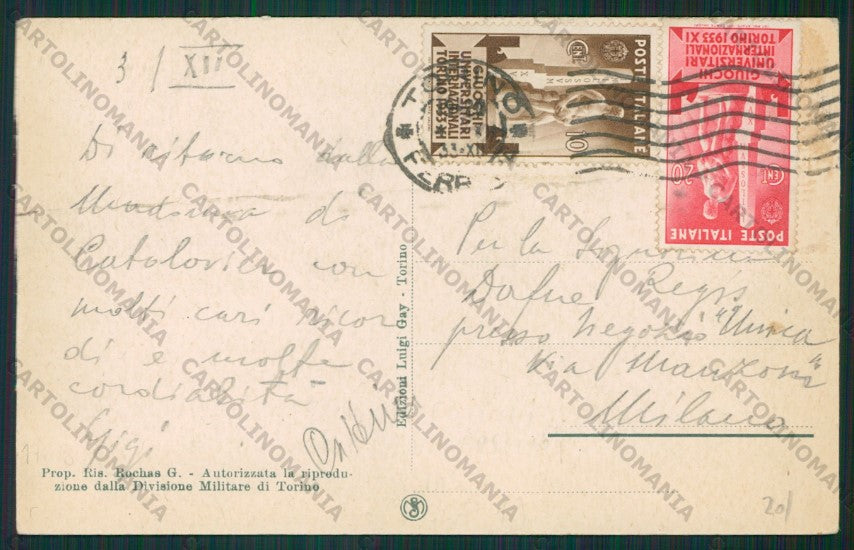 3 / XII
Di ritorno dalla
di
con
molti cari ricor
di e molte
cordialità
Gigi
Prop. Ris. Rochas G. - Autorizzata la riprodu-
zione dalla Divisione Militare di Torino
Edizioni Luigi Gay - Torino
POSTE ITALIANE
CENT 10
GIUOCHI
UNIVERSITARI
INTERNAZIONALI
TORINO 1933 XI
POSTE ITALIANE
CENT 20
GIUOCHI
UNIVERSITARI
INTERNAZIONALI
TORINO 1933 XI
TORINO
Per la Signorina
Dafne
presso Negozio "Unica"
Via Manzoni
Milano
20/
CARTOLINOMANIA